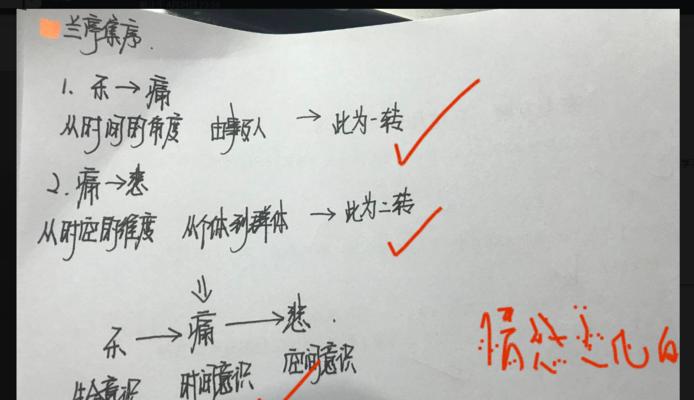 兰亭集序
1. 乐→痛
从时间的角度 由事及人 → 此为一转
2. 痛→悲
从时空的维度 从个体到群体 → 此为二转
⇓
乐→痛→悲.
生命意识 时间意识 空间意识
情感变化